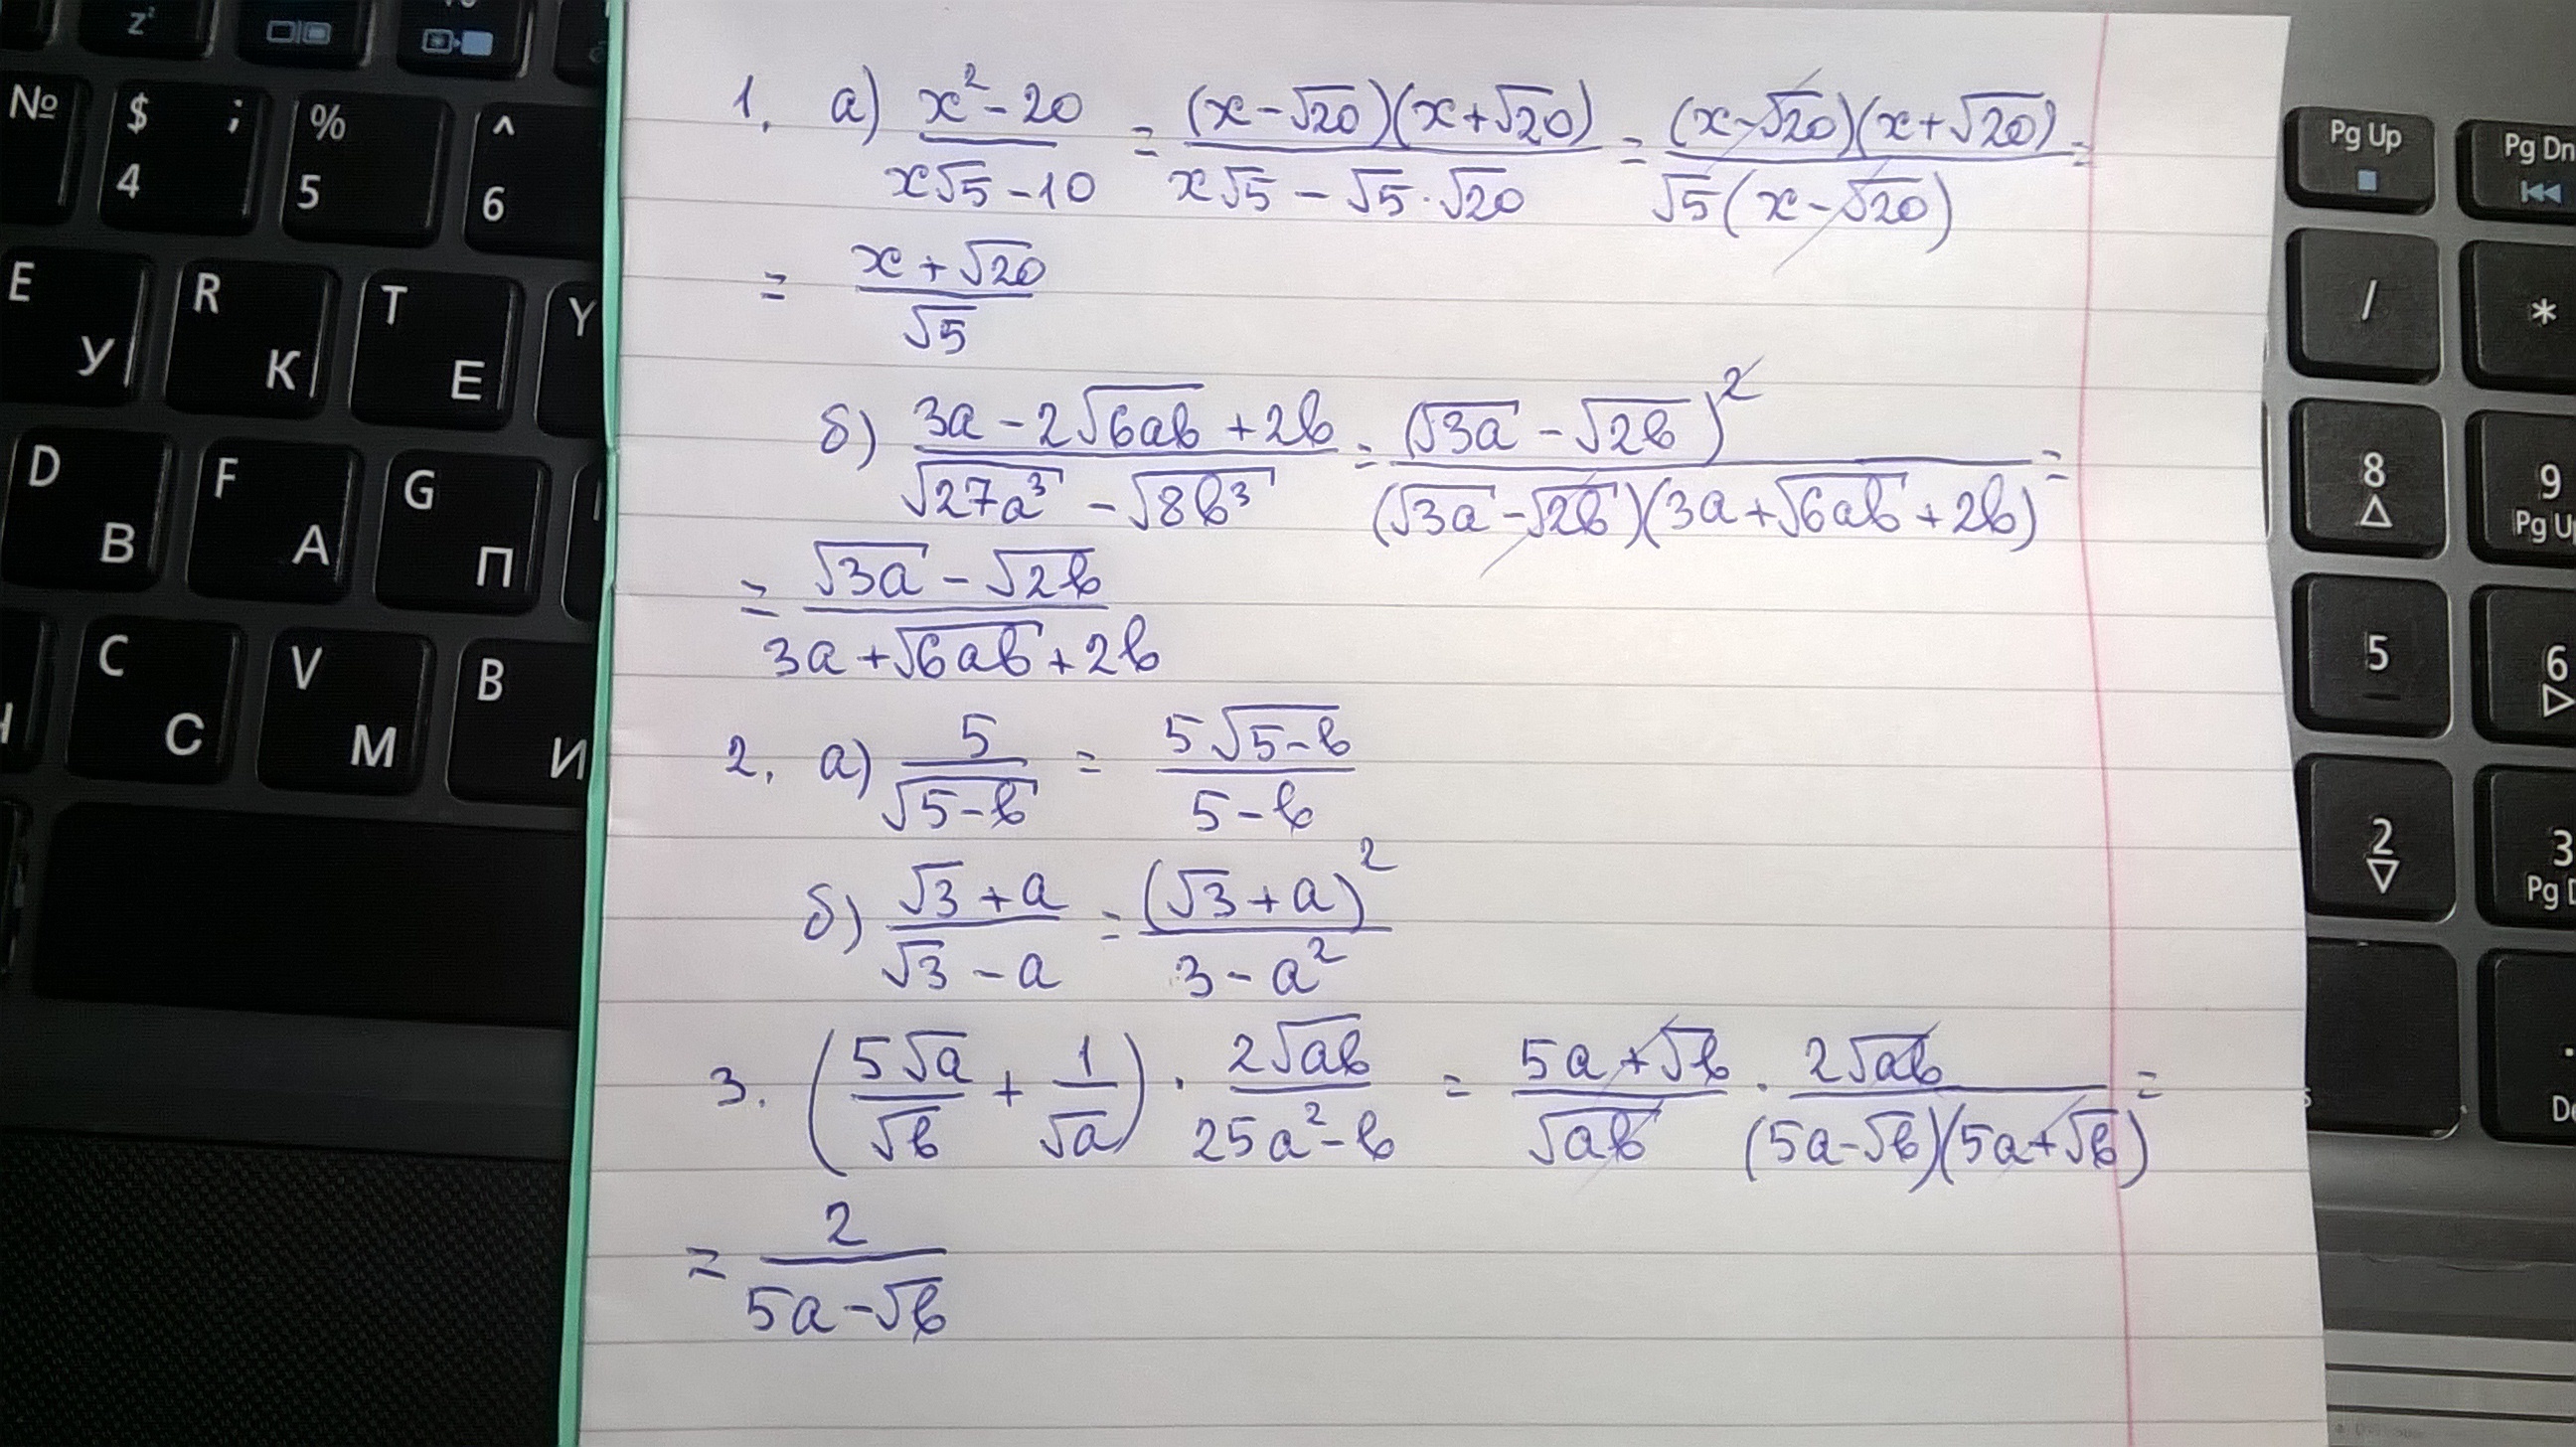 1. а) \frac{x^2 - 20}{x\sqrt{5} - 10} = \frac{(x - \sqrt{20})(x + \sqrt{20})}{x\sqrt{5} - \sqrt{5} \cdot \sqrt{20}} = \frac{(x - \sqrt{20})(x + \sqrt{20})}{\sqrt{5}(x - \sqrt{20})} =
= \frac{x + \sqrt{20}}{\sqrt{5}}
б) \frac{3a - 2\sqrt{6ab} + 2b}{\sqrt{27a^3} - \sqrt{8b^3}} = \frac{(\sqrt{3a} - \sqrt{2b})^2}{(\sqrt{3a} - \sqrt{2b})(3a + \sqrt{6ab} + 2b)} =
= \frac{\sqrt{3a} - \sqrt{2b}}{3a + \sqrt{6ab} + 2b}
2. а) \frac{5}{\sqrt{5 - b}} = \frac{5\sqrt{5 - b}}{5 - b}
б) \frac{\sqrt{3} + a}{\sqrt{3} - a} = \frac{(\sqrt{3} + a)^2}{3 - a^2}
3. \left(\frac{5\sqrt{a}}{\sqrt{b}} + \frac{1}{\sqrt{a}}\right) \cdot \frac{2\sqrt{ab}}{25a^2 - b} = \frac{5a + \sqrt{b}}{\sqrt{ab}} \cdot \frac{2\sqrt{ab}}{(5a - \sqrt{b})(5a + \sqrt{b})} =
= \frac{2}{5a - \sqrt{b}}
z²
№ $ ; 4 % 5 ^ 6
E У R К T Е Y
D В F А G П
C С V М B И
Pg Up Pg Dn
/ *
8 9 Pg Up
5 6
2 3